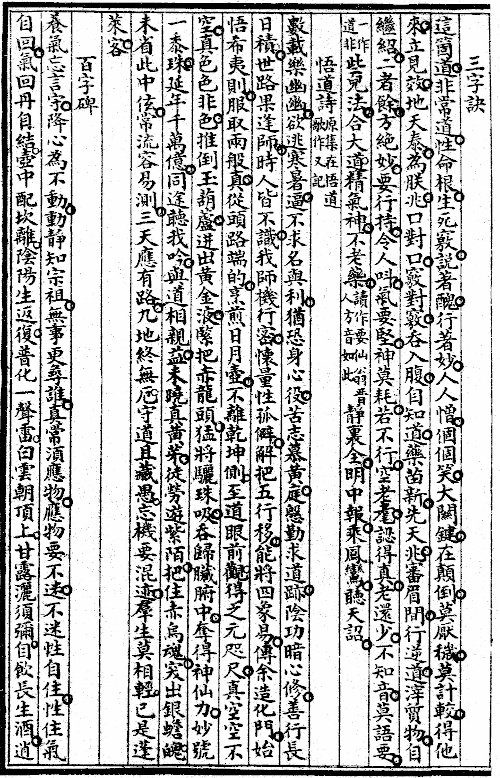 三字訣
這箇道非常道性命根生死竅説着醜行着妙人人憎個個笑大關鍵在顛倒莫厭穢莫計較得他
來立見效地天泰為朕兆口對口竅對竅吞入腹自知道藥苗新先天兆審眉間行逆道滓質物自
繼紹二者餘方絕妙要行持令人叫氣要堅神莫耗若不行空老耄認得真老還少不知音莫語要
一作道非此兒法合大道精氣神不老藥讀作要仙翁晋人方音如此靜裏全明中報乘鳳鸞聽天詔
悟道詩原集在悟道歌作又記
數載樂幽幽欲逃寒暑逼不求名與利猶恐身心役苦志慕黃庭慇勤求道跡陰功暗心修善行長
日積世路果逢師時人皆不識我師機行密懷量性孤僻解把五行移能將四象易傳余造化門始
悟希夷則服取兩般真從頭路端的烹煎日月壺不離乾坤側至道眼前觀得之元咫尺真空空不
空真色色非色推倒玉葫蘆迸出黃金液緊把赤龍頭猛將驪珠吸吞歸臟腑中奪得神仙力妙號
一黍珠延年千萬億同途聽我吟與道相親益未曉真黃芽徒勞遊紫陌把住赤烏魂突出銀蟾魄
未省此中玄常流容易測三天應有路九地終無厄守道且藏愚忘機要混迹羣生莫相輕已是蓬
萊客
百字碑
養氣忘言守降心為不動動靜知宗祖無事更尋誰真常須應物應物要不迷不迷性自住性住氣
自回氣回丹自結壺中配坎離陰陽生返復普化一聲雷白雲朝頂上甘露灑須彌自飲長生酒逍